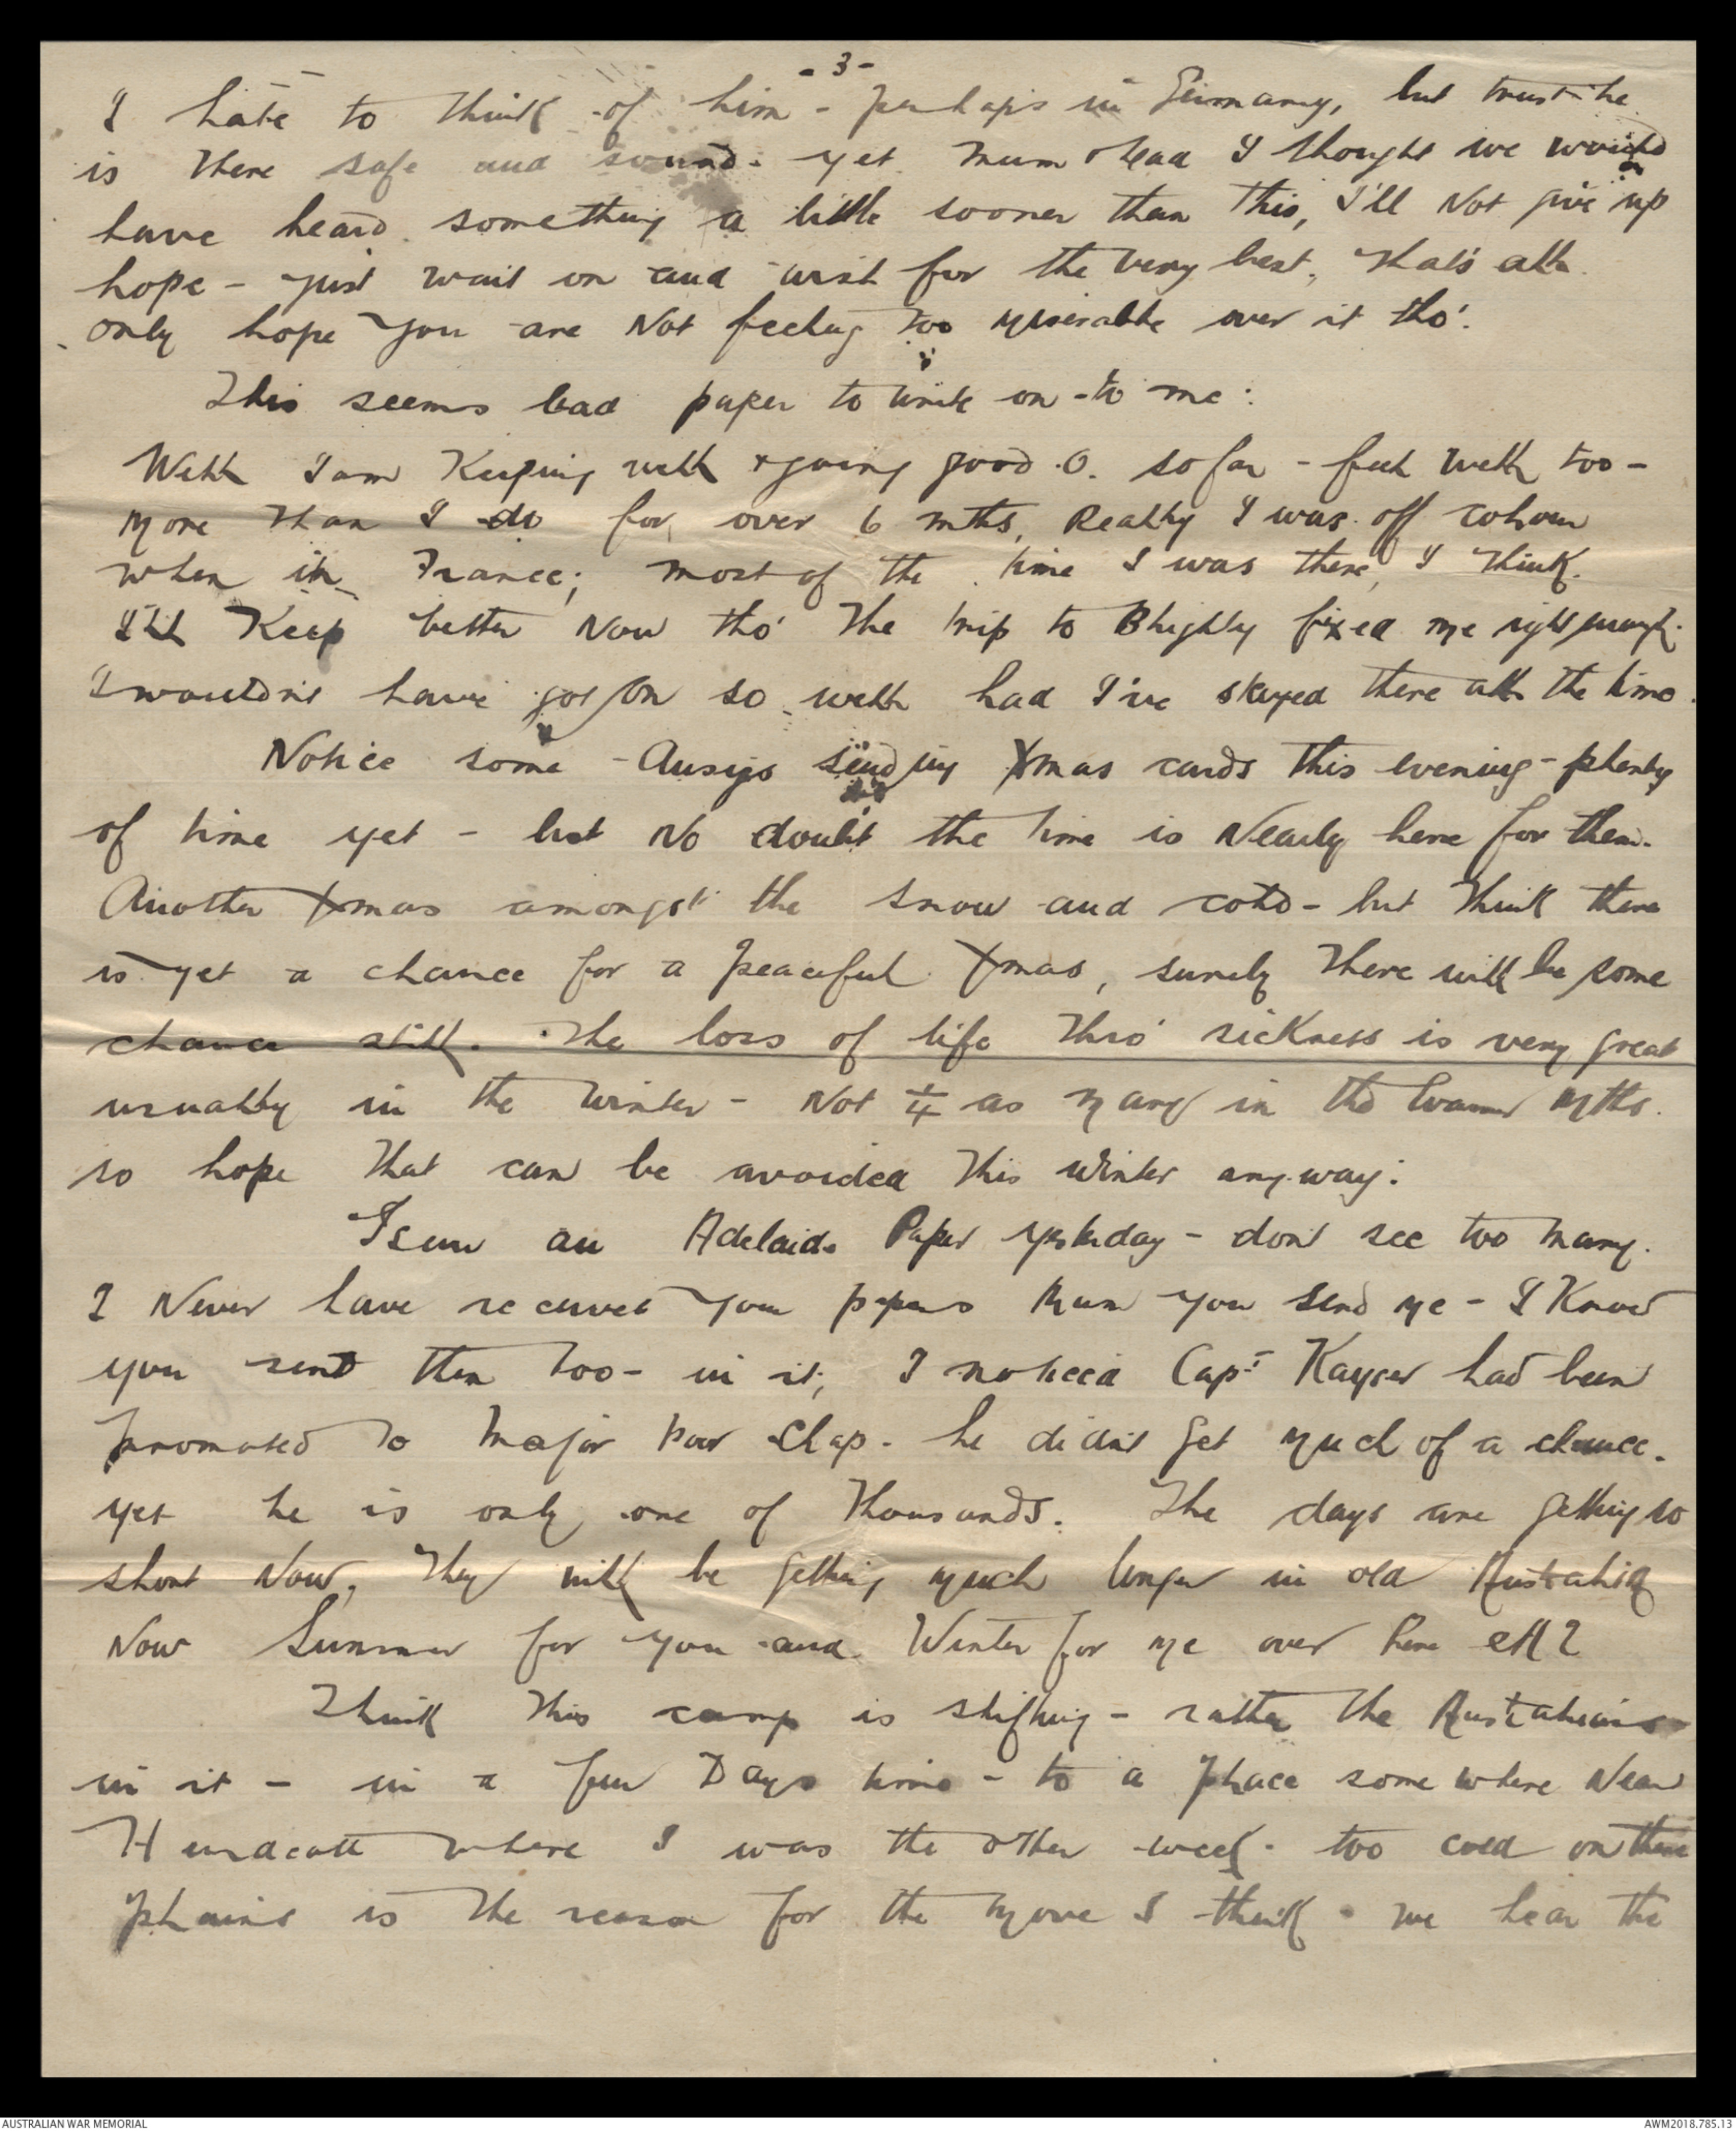 - 3 -
I hate to think of him - perhaps in Germany, but trust he
is there safe and sound. yet Mum dead I thought we would
have heard something a little sooner than this, I'll Not give up
hope - just wait on and wish for the very best, that's all.
only hope you are Not feeling too miserable over it tho'.
This seems bad paper to write on - to me:
Well I am Keeping well & going good .O. so far - feel well too -
more than I do for over 6 mths, Really I was off colour
when in France; most of the time I was there, I think.
I'll Keep better Now tho' The trip to Blighty fixed me right enough.
I wouldn't have got on so well had I've stayed there all the time.
Notice some Aussys sending Xmas cards this evening - plenty
of time yet - but No doubt the time is Nearly here for them.
Another Xmas amongst the snow and cold - but think there
is yet a chance for a peaceful Xmas, surely there will be some
chance still. The loss of life thro' sickness is very great
usually in the winter - Not ¼ as many in the warm mths.
so hope that can be avoided this winter any.way:
I seen an Adelaide Paper yesterday - don't see too many.
I Never have received your papers Mum you send me - I Know
you send them too - in it; I noticed Capt Kayser had been
promoted to Major poor chap - he didn't get much of a chance.
yet he is only one of thousands. The days are getting so
short Now, they will be getting much longer in old Australia
Now Summer for you and Winter for me over here eh?
Think this camp is shifting - rather the Australians
in it - in a few Days time - to a place some where Near
Hurdcott where I was the other week - too cold on these
plains is the reason for the move I think. we hear the
AUSTRALIAN WAR MEMORIAL
AWM2018.785.13